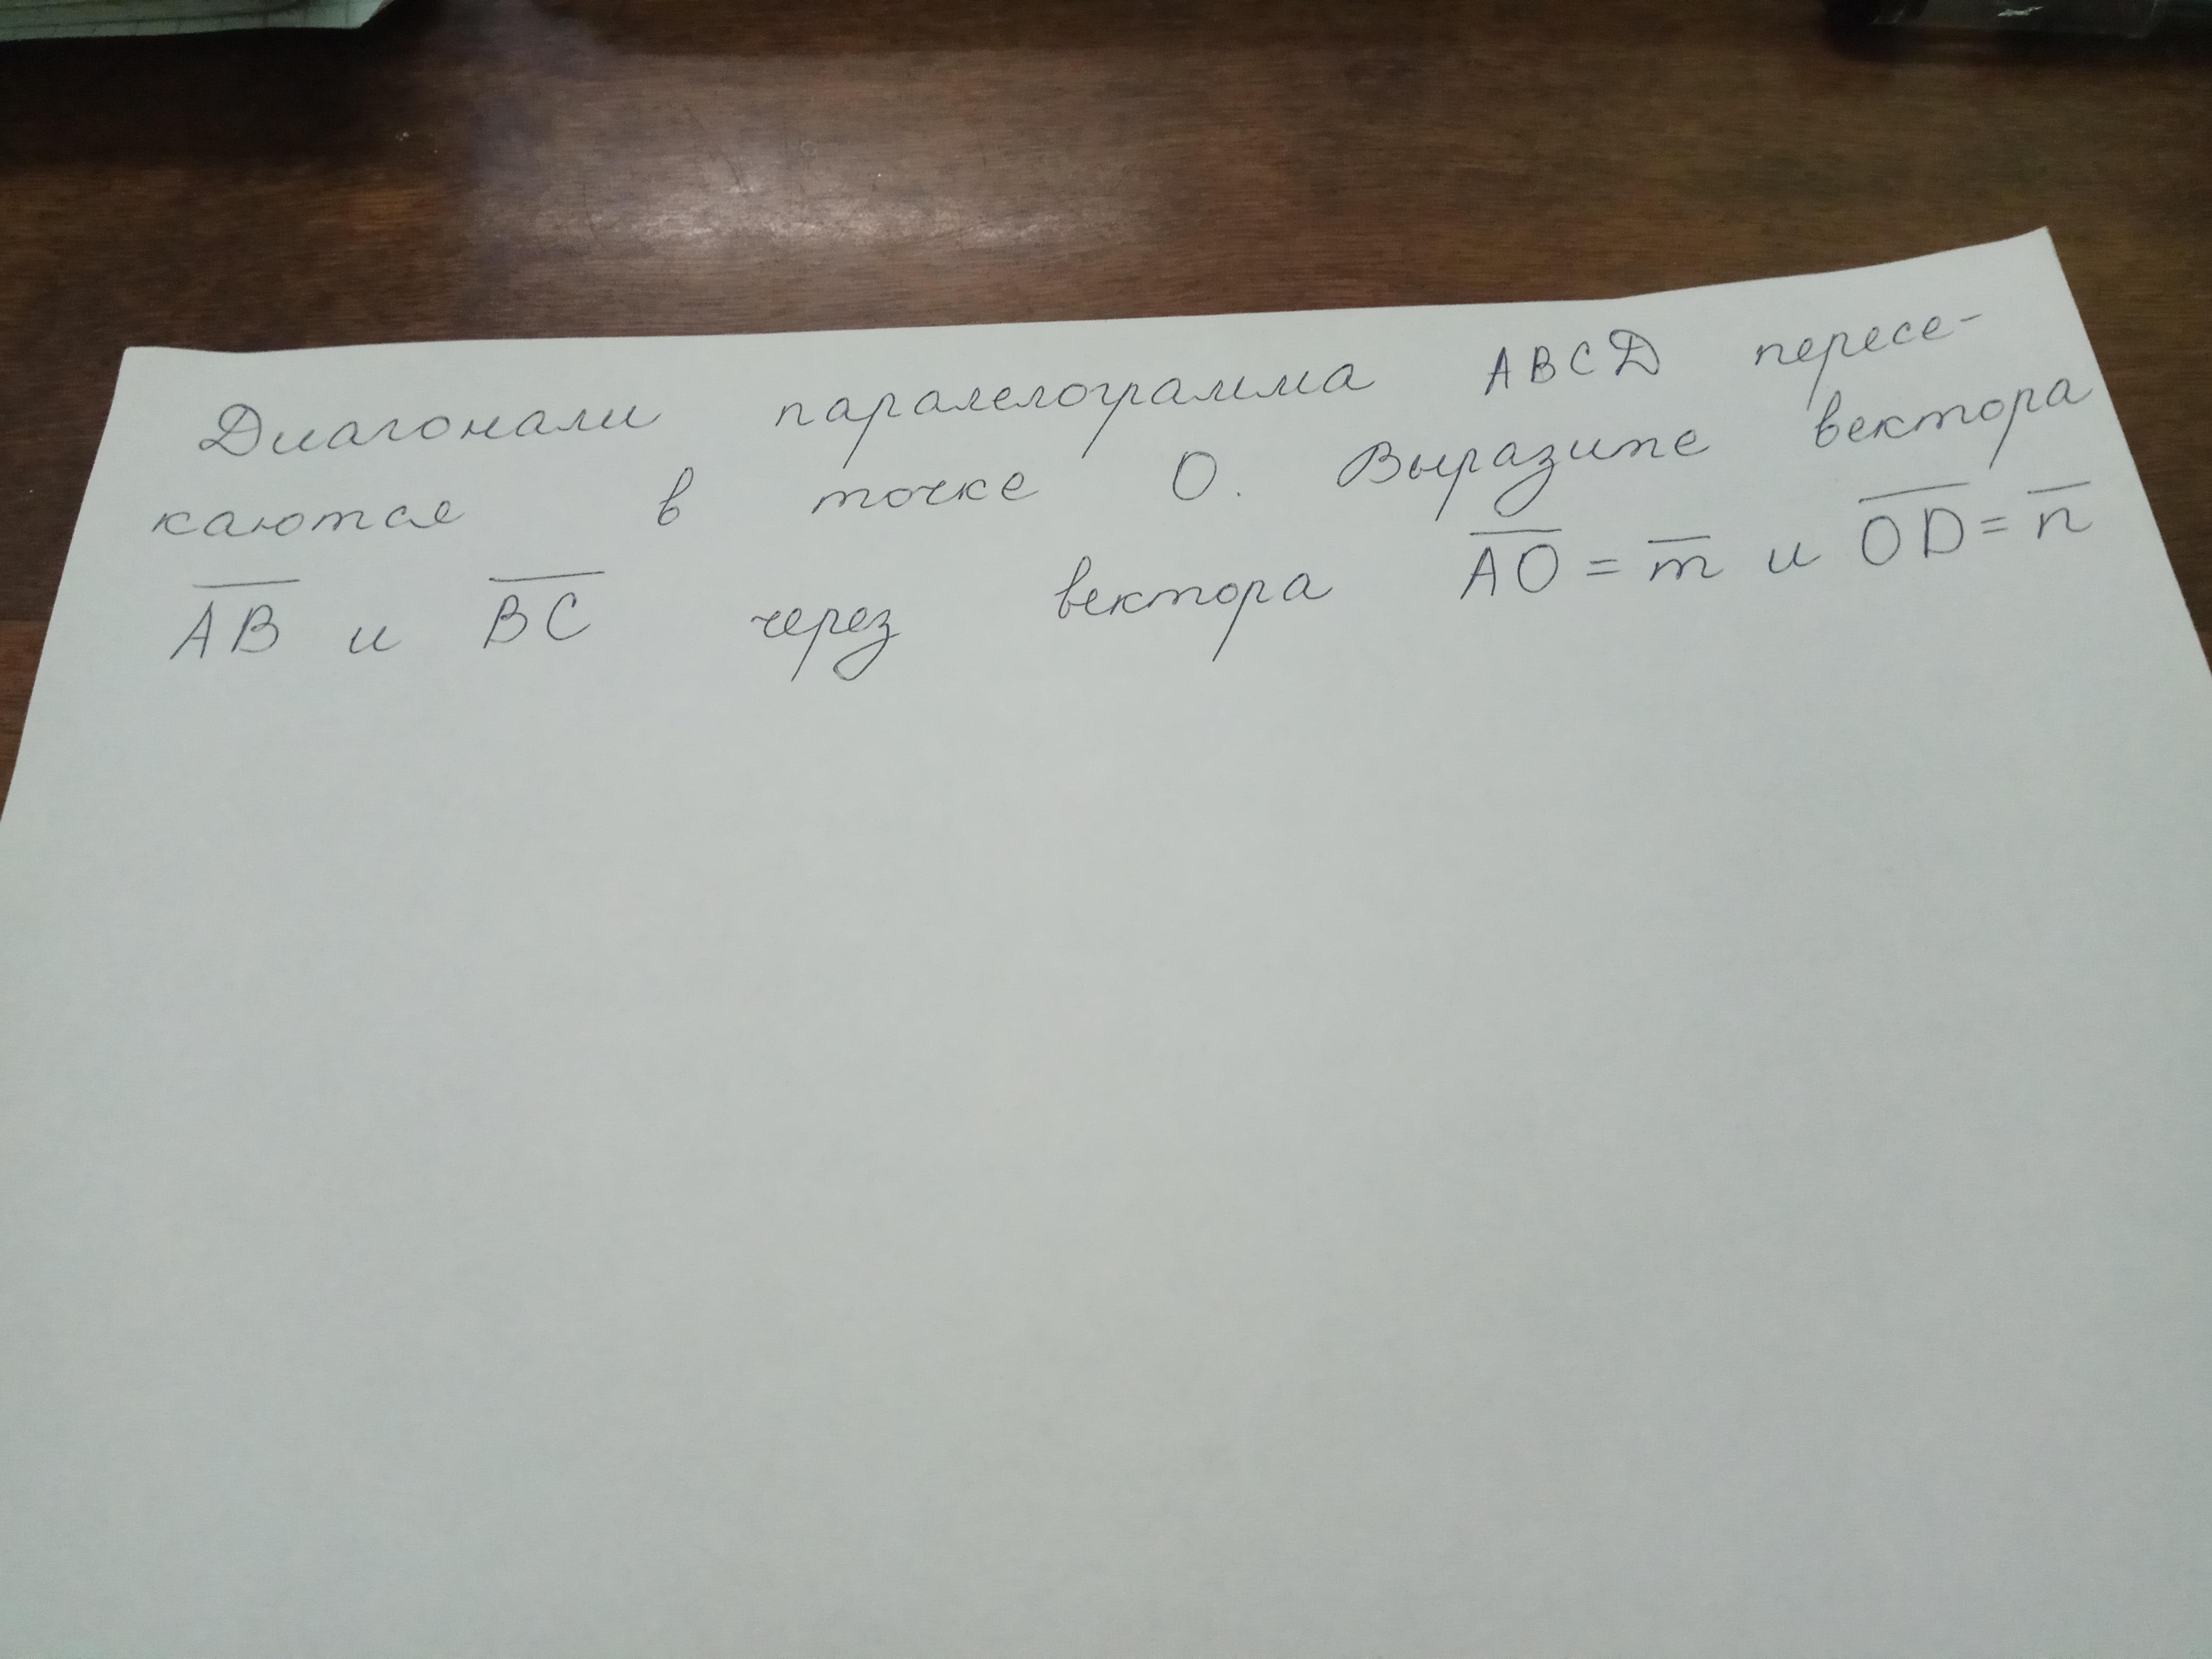 Диагонали паралелограмма ABCD пересе-
каются в точке O. Выразите вектора
\overline{AB} и \overline{BC} через вектора \overline{AO} = \overline{m} и \overline{OD} = \overline{n}